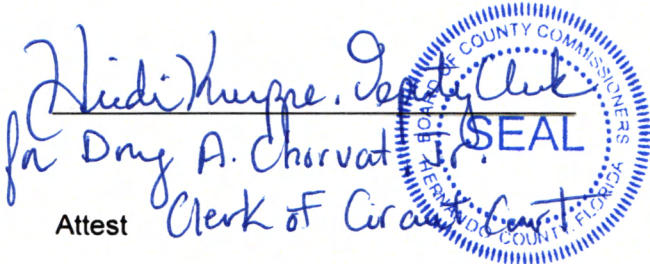 Heidi Kuppe, Deputy Clerk
for Doug A. Chorvat Jr.
Attest Clerk of Circuit Court
BOARD OF COUNTY COMMISSIONERS
SEAL
HERNANDO COUNTY, FLORIDA